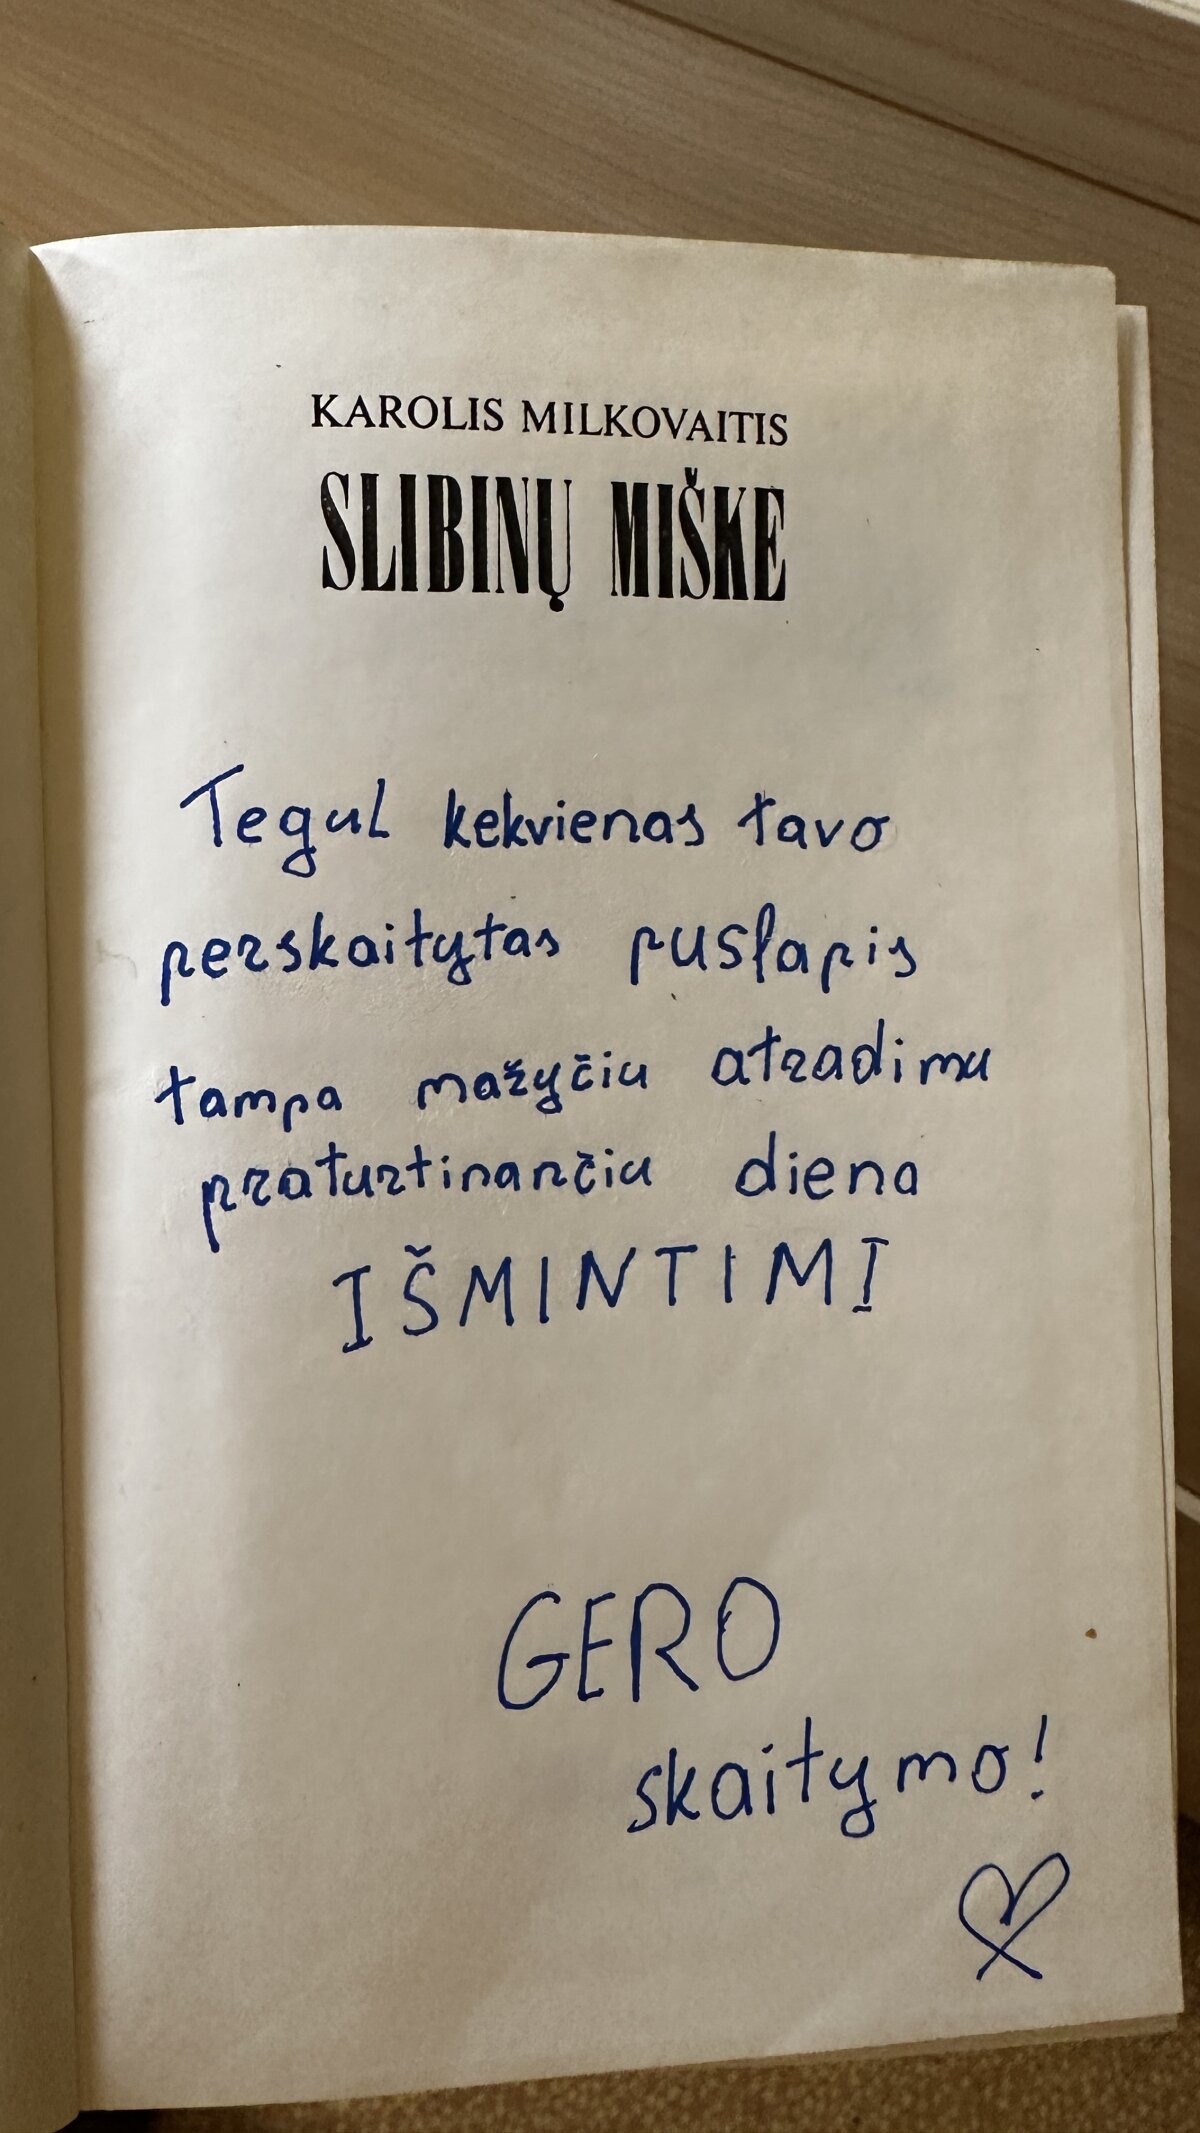 KAROLIS MILKOVAITIS
SLIBINŲ MIŠKE
Tegul kekvienas tavo
perskaitytas puslapis
tampa mažyčiu atradimu
praturtinančiu diena
IŠMINTIMI
GERO
skaitymo!